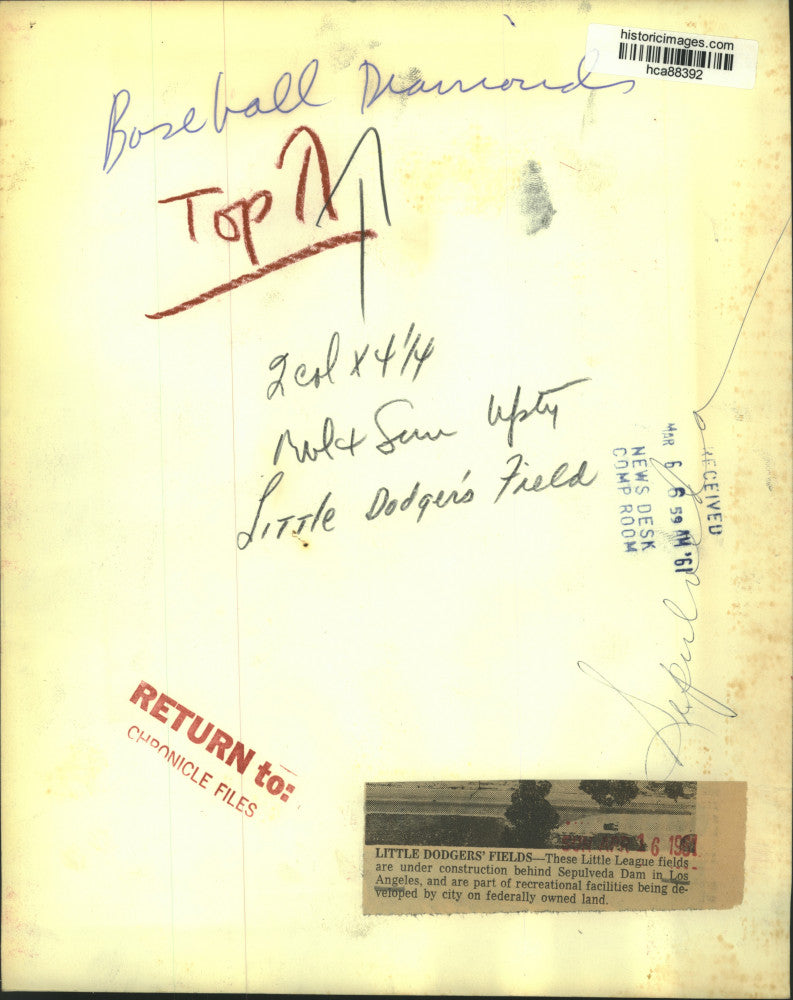 historicimages.com
hca88392
Baseball Diamonds
Top
2 col x 4 1/4
Sun
Little Dodgers Field
RECEIVED
MAR 6 6 59 AM '61
NEWS DESK
COMP ROOM
Sepulveda
RETURN to:
CHRONICLE FILES
16 1961
LITTLE DODGERS' FIELDS—These Little League fields
are under construction behind Sepulveda Dam in Los
Angeles, and are part of recreational facilities being de-
veloped by city on federally owned land.